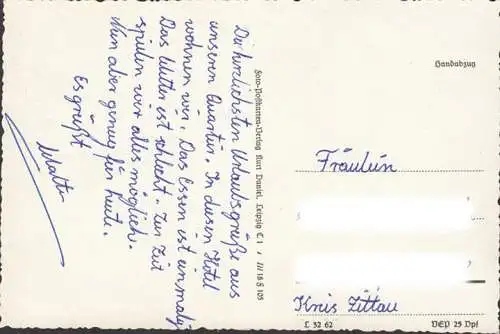 Die herzlichsten Urlaubsgrüße aus
unseren Quartier. In diesen Hotel
wohnen wir. Das Essen ist einmalig.
Das Wetter ist schlecht. Zur Zeit
spielen wir alles mögliche.
Nun aber genug für heute.
Es grüßt
Walter
Foto-Postkarten-Verlag Kurt Daniel, Leipzig C 1 / III 18 § 105
Handabzug
Fräulein
Kreis Zittau
L 32 62
VEP 25 Dpf